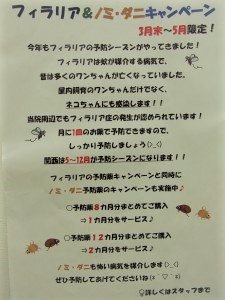 フィラリア＆ノミ・ダニキャンペーン
3月末～5月限定！
今年もフィラリアの予防シーズンがやってきました！
フィラリアは蚊が媒介する病気で、
昔は多くのワンちゃんが亡くなっていました。
室内飼育のワンちゃんだけでなく、
ネコちゃんにも感染します！！
当院周辺でもフィラリア症の発生が認められています！
月に1回のお薬で予防できますので、
しっかり予防しましょう(>_<)
関西は5～12月が予防シーズンになります！！
フィラリアの予防薬キャンペーンと同時に
ノミ・ダニ予防薬のキャンペーンも実施中♪
○予防薬8カ月分まとめてご購入
⇒1カ月分をサービス♪
○予防薬12カ月分まとめてご購入
⇒2カ月分をサービス♪
ノミ・ダニも怖い病気を媒介します(>_<)
ぜひ予防してあげてくださいね(≧▽≦)
詳しくはスタッフまで